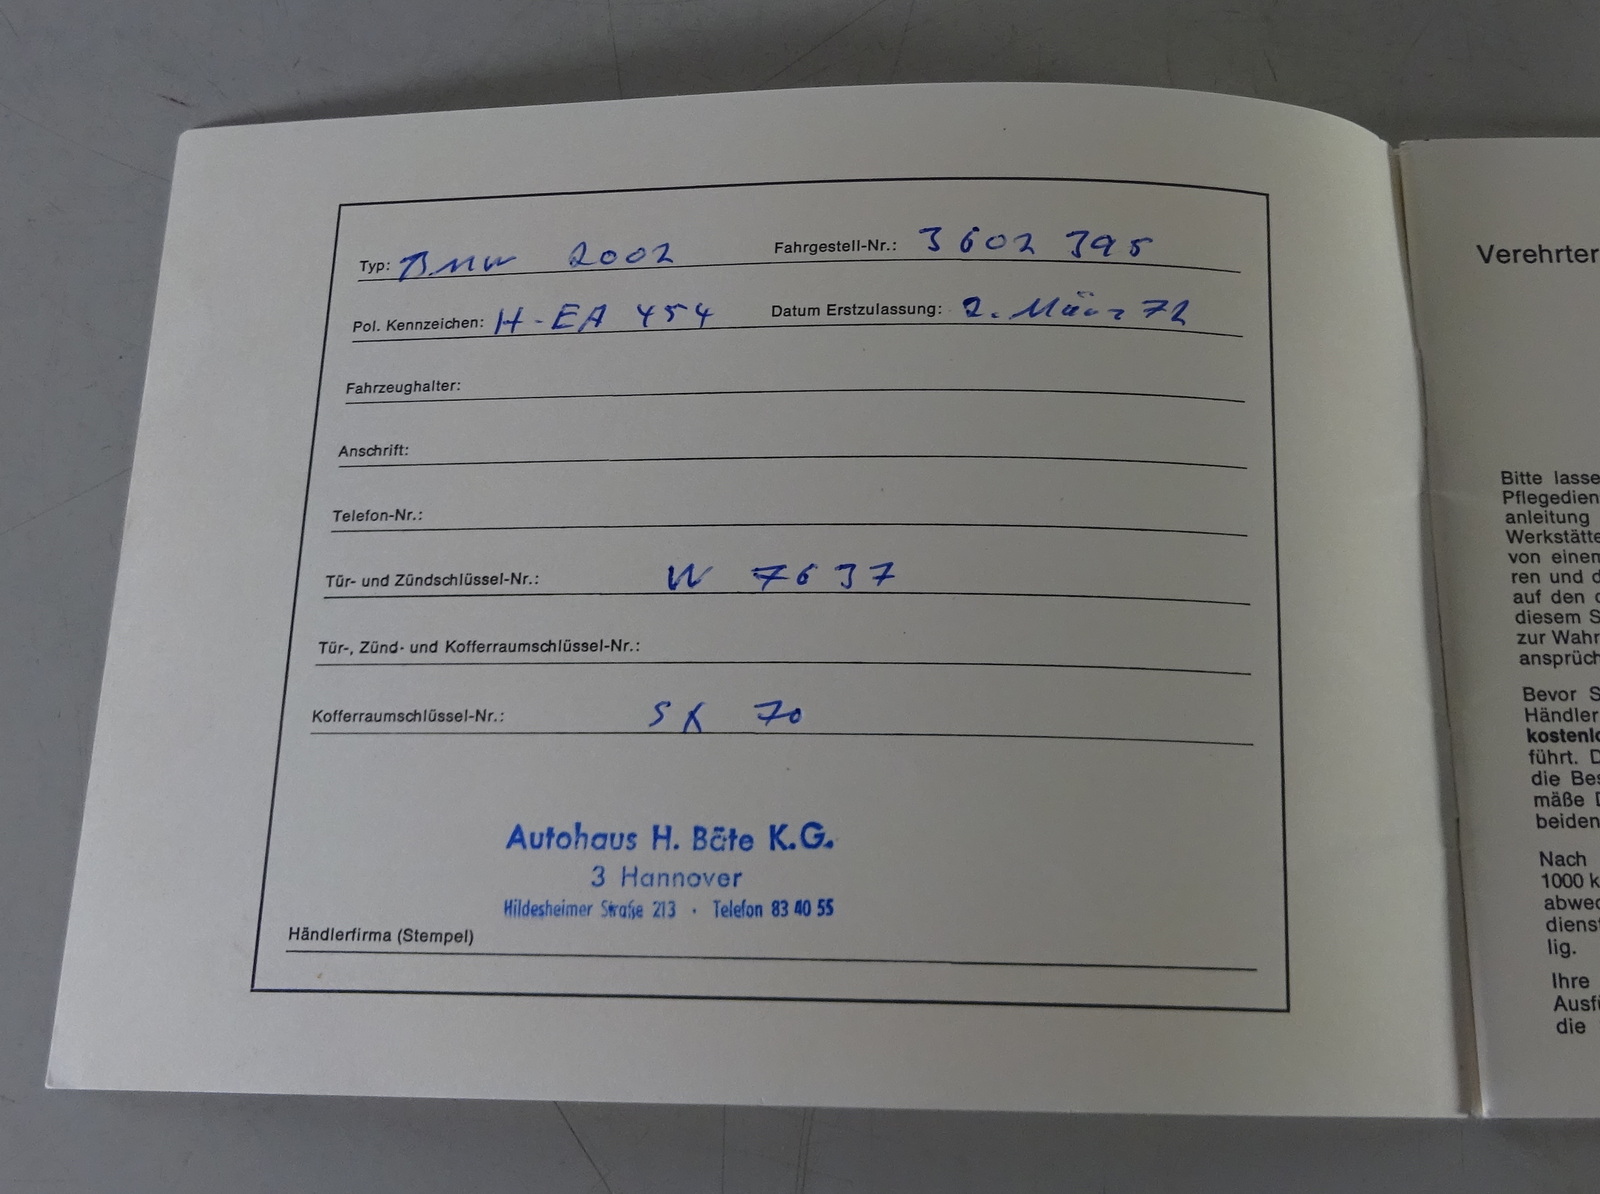 Typ: BMW 2002 Fahrgestell-Nr.: 3602 395
Pol. Kennzeichen: H-EA 454 Datum Erstzulassung: 2. März 72
Fahrzeughalter:
Anschrift:
Telefon-Nr.:
Tür- und Zündschlüssel-Nr.: W 7637
Tür-, Zünd- und Kofferraumschlüssel-Nr.:
Kofferraumschlüssel-Nr.: SK 70
Autohaus H. Bäte K.G.
3 Hannover
Hildesheimer Straße 213 · Telefon 83 40 55
Händlerfirma (Stempel)
Verehrter
Bitte lasse
Pflegedien
anleitung
Werkstätte
von einem
ren und d
auf den
diesem S
zur Wahr
ansprüch
Bevor S
Händler
kostenlo
führt. D
die Bes
mäße D
beiden
Nach
1000 k
abwec
dienst
lig.
Ihre
Ausfü
die